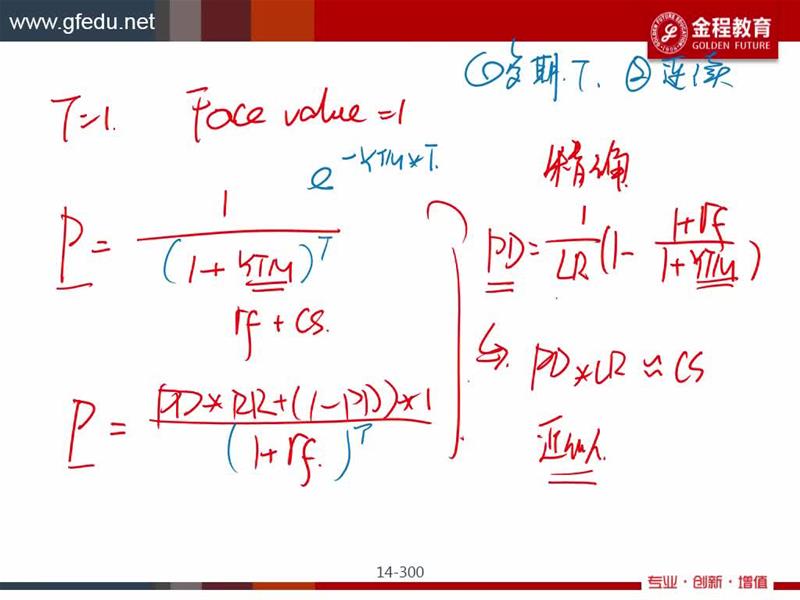 www.gfedu.net
金程教育
GOLDEN FUTURE
①多期.T. ②连续
T=1. Face value=1
e^{-YTM*T.}
精确
P = 1 / (1+YTM)^T
rf + CS.
PD = 1/LR (1 - (1+rf)/(1+YTM))
↳. PD*LR ≈ CS
P = (PD*RR+(1-PD))*1 / (1+rf.)^T
近似.
14-300
专业·创新·增值